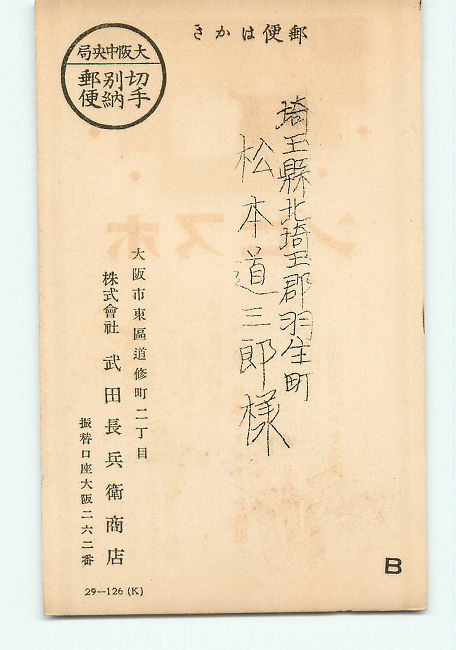 郵便はかき
大阪中央局
切手
別納
郵便
埼玉縣北埼玉郡羽生町
松本道三郎様
大阪市東區道修町二丁目
株式會社 武田長兵衛商店
振替口座大阪二六二番
B
29—126 (K)